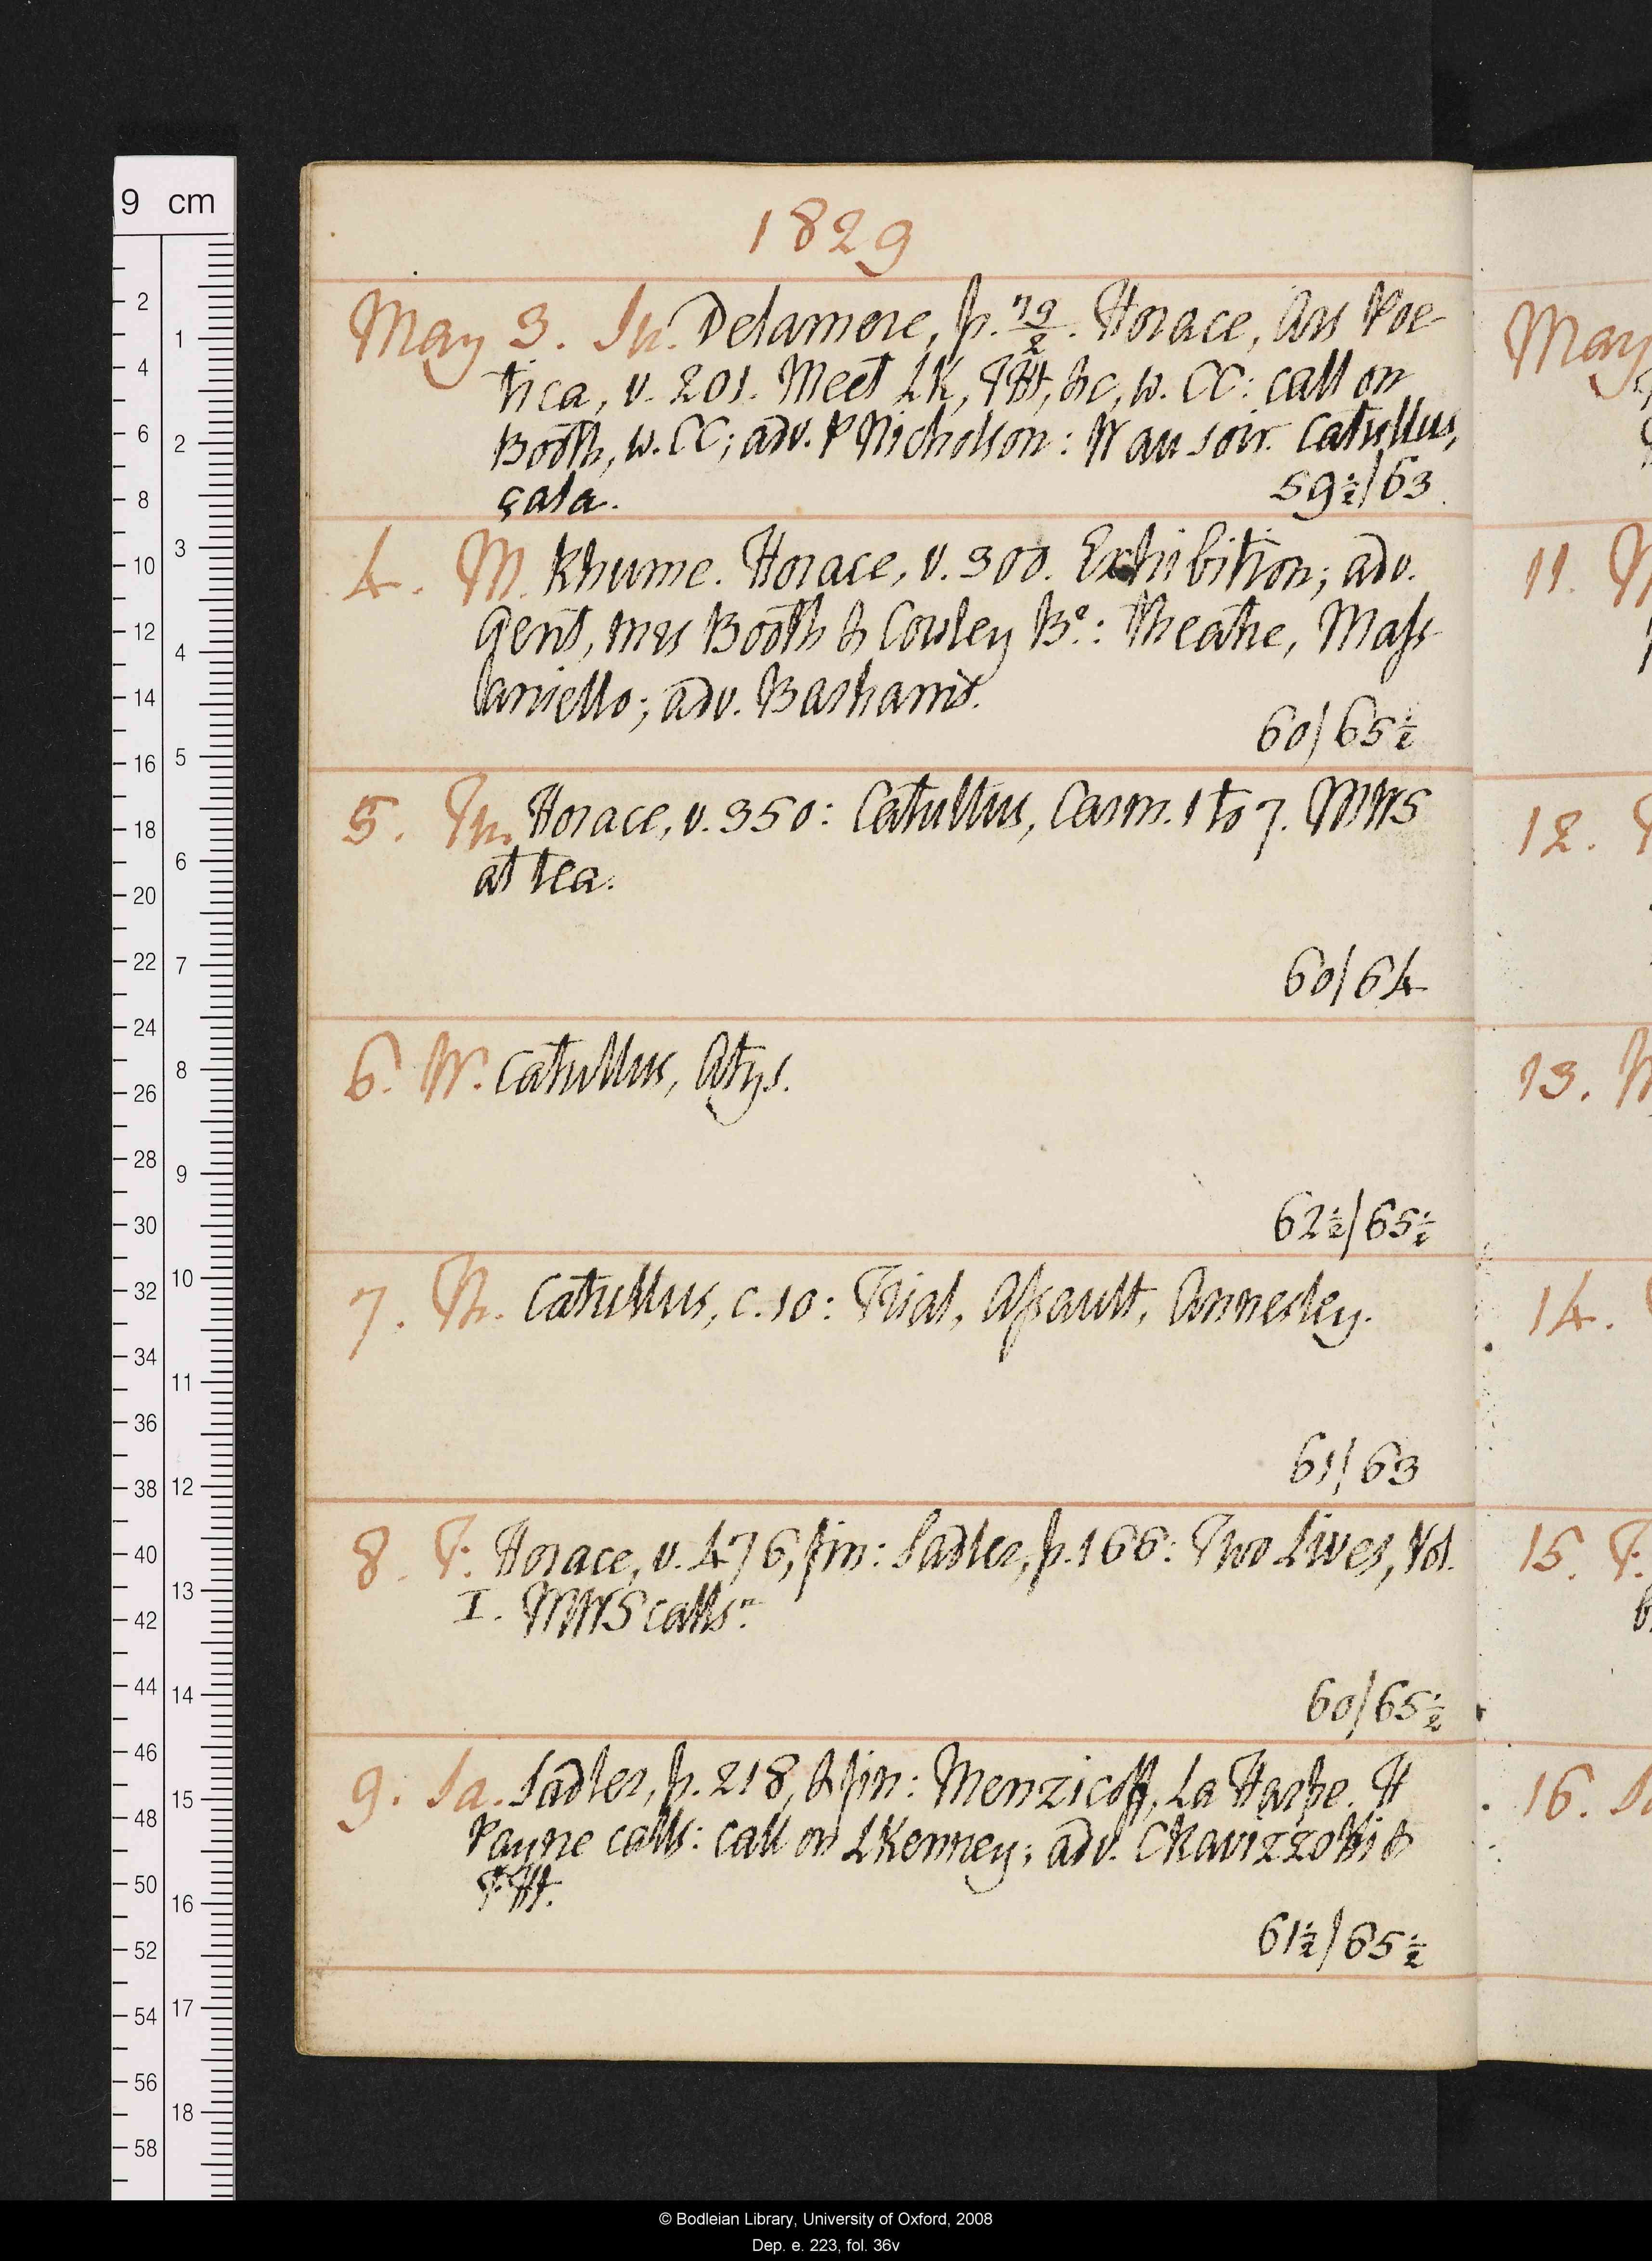 1829
May 3. Su. Delamore, p. 79/2. Horace, Ars Poe-
tica, v. 201. Meet LK, THt, &c, w. CC: call on
Booth, w. CC; adv. P Nicholson: W au soir. Catullus,
çala.
59½/63
4. M. Rhume. Horace, v. 300. Exhibition; adv.
Gent, mrs Booth & Cowley Bo.: theatre, Mass-
aniello; adv. Bashams.
60/65½
5. Tu. Horace, v. 350: Catullus, Carm. 1 to 7. MWS
at tea.
60/64
6. W. Catullus, Atys.
62½/65½
7. Th. Catullus, c. 10: Trial, Assault, Annesley.
61/63
8. F. Horace, v. 476, fin: Sadler, p. 166: Two Lives, Vol.
I. MWS callsn.
60/65½
9. Sa. Sadler, p. 218, & fin: Menzicoff, La Harpe. H
Payne calls: call on LKenney; adv. CRavizzotti &
THt.
61½/65½
May
11.
12.
13.
14.
15.
16.
9 cm
© Bodleian Library, University of Oxford, 2008
Dep. e. 223, fol. 36v